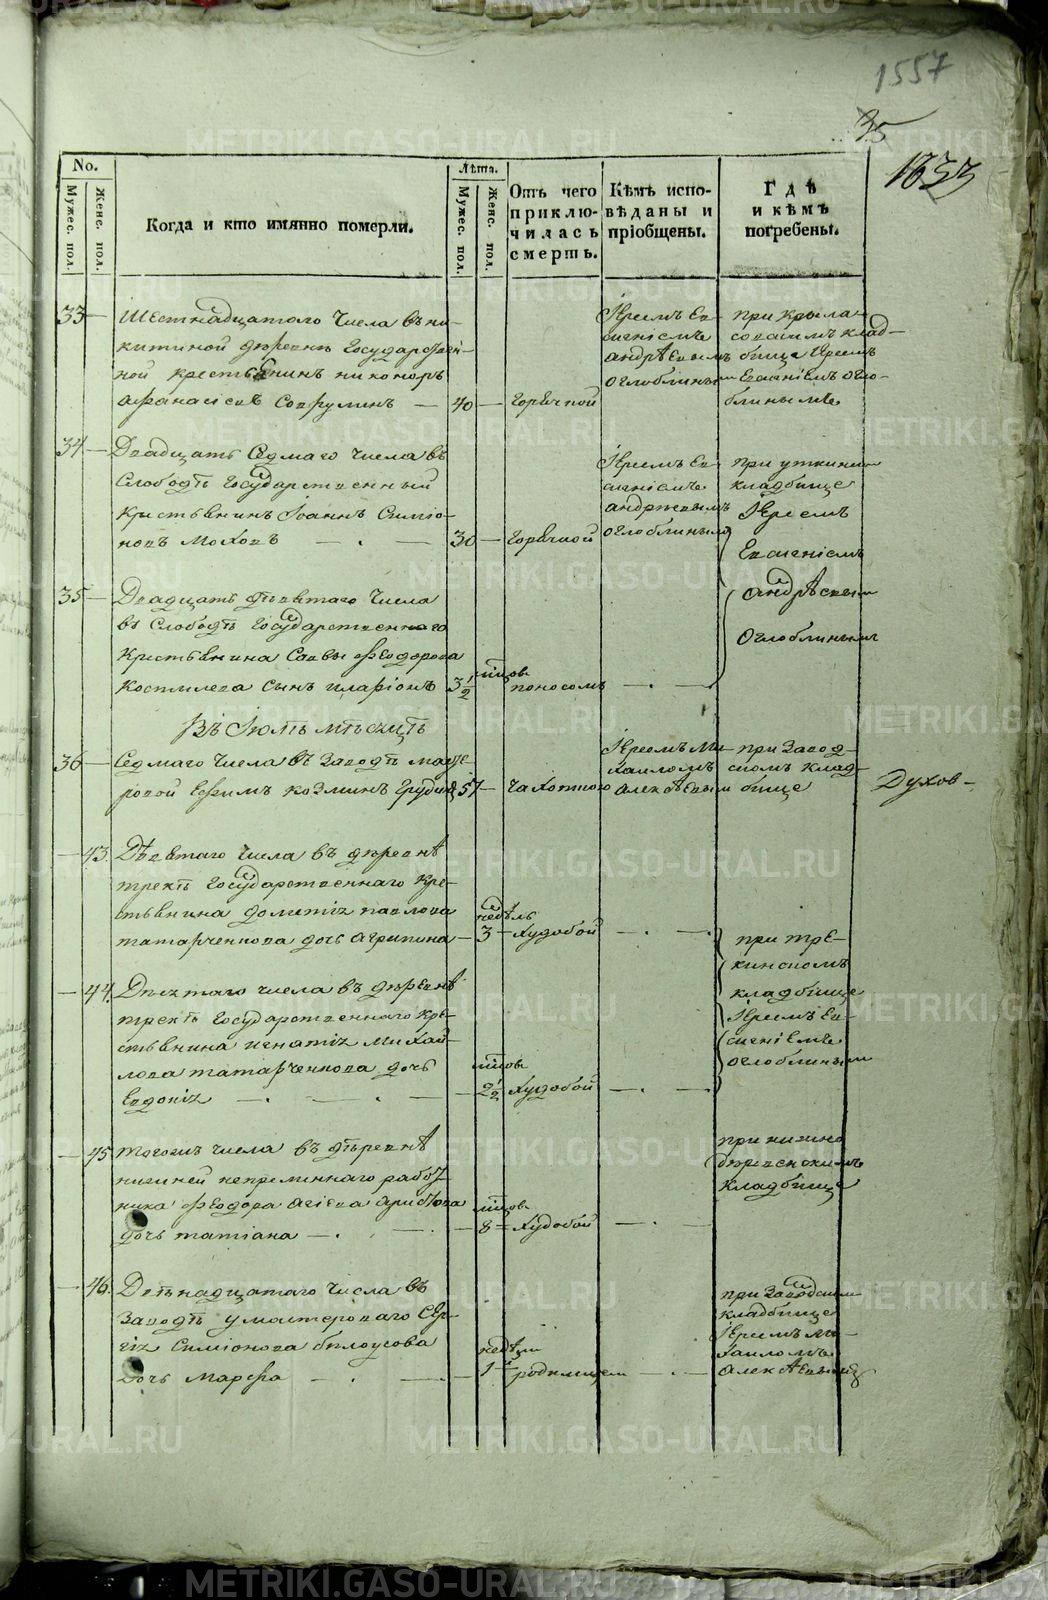 1557
35
1833
No.
Мужес. пол.
Женс. пол.
Когда и кто имянно померли.
Лѣта.
Мужес. пол.
Женс. пол.
Отъ чего
приклю-
чилась
смерть.
Кѣмъ испо-
вѣданы и
пріобщены.
Гдѣ
и кѣмъ
погребены.
33
Шестнадцатаго числа въ ни-
китиной деревнѣ Государствен-
ной крестьянинъ никоноръ
афанасіевъ
40
Горячкой
Іереемъ Ев-
геніемъ
андрѣевымъ
оглоблинымъ
при крыла-
совскомъ клад-
бище Іереемъ
Евгеніемъ огло-
блинымъ
34
Двадцать седмаго числа въ
Слободѣ Государственный
крестьянинъ Іоаннъ Симіо-
новъ Моховъ
30
Горячкой
Іереемъ Ев-
геніемъ
андреевымъ
оглоблинымъ
при уткинскомъ
кладбище
Іереемъ
Евгеніемъ
андрѣевымъ
Оглоблинымъ
35
Двадцать девятаго числа
въ Слободѣ Государственнаго
крестьянина Саввы Феодорова
Костылева сынъ иларіонъ
3 1/2
мѣсяцовъ
поносомъ
Въ Іюлѣ мѣсяцѣ
36
Седмаго числа въ заводѣ масте-
ровой Ефимъ козминъ
57
чахоткою
Іереемъ Ми-
хаиломъ
алексѣевымъ
при завод-
скомъ клад-
бище
Духов-
43.
Девятаго числа въ деревнѣ
трекѣ Государственнаго кре-
стьянина дометія павлова
татарченкова дочь агрипина
недѣль
3
худобой
при тре-
кинскомъ
кладбище
Іереемъ Ев-
геніемъ
оглоблинымъ
44.
числа въ деревнѣ
трекѣ Государственнаго кре-
стьянина игнатія михай-
лова татарченкова дочь
Евдокія
мѣсяцовъ
2 1/2
худобой
45
тогожъ числа въ деревнѣ
нижней непременнаго работ-
ника Феодора
дочь татіана
мѣсяцовъ
8
худобой
при нижно
деревенскимъ
кладбище
46.
Девтьнадцатаго числа въ
заводѣ умастероваго Сер-
гія Симіонова белоусова
дочь Марфа
недѣли
1
родимцемъ
при заводскомъ
кладбище
Іереемъ ми-
хаиломъ
алексѣевымъ